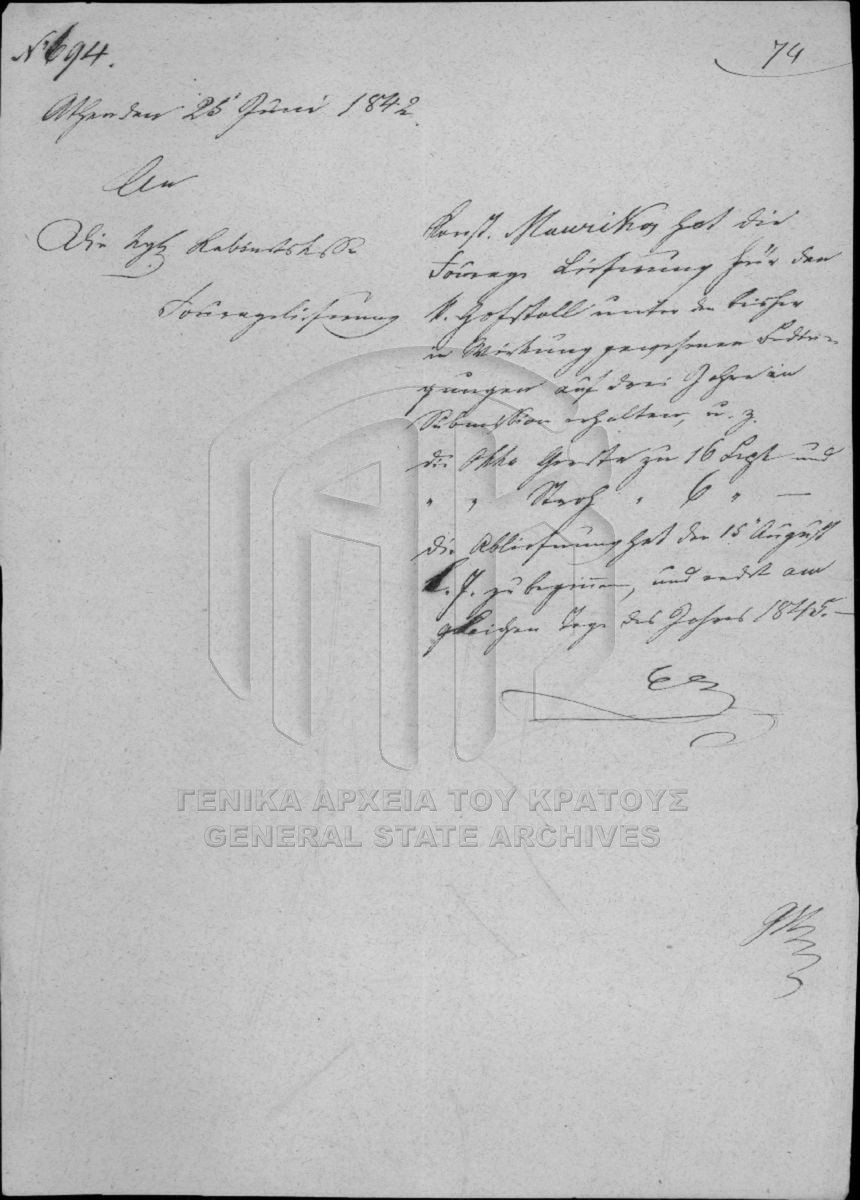 № 694.
74
Athen den 25' Juni 1842.
An
Die kgl. Kabinetskasse
Fouragelieferung
Konst. Maurikos hat die
Fourage Lieferung für den
k. Hofstall unter den bisher
in Wirkung gewesenen Bedin-
gungen auf drei Jahre in
Submission erhalten, u. z.
die Okka Gerste zu 16 Lept und
" " Stroh " 6 " —
Die Ablieferung hat den 15' August
l. J. zu beginnen, und endet am
gleichen Tage des Jahres 1845. —
ΓΕΝΙΚΑ ΑΡΧΕΙΑ ΤΟΥ ΚΡΑΤΟΥΣ
GENERAL STATE ARCHIVES